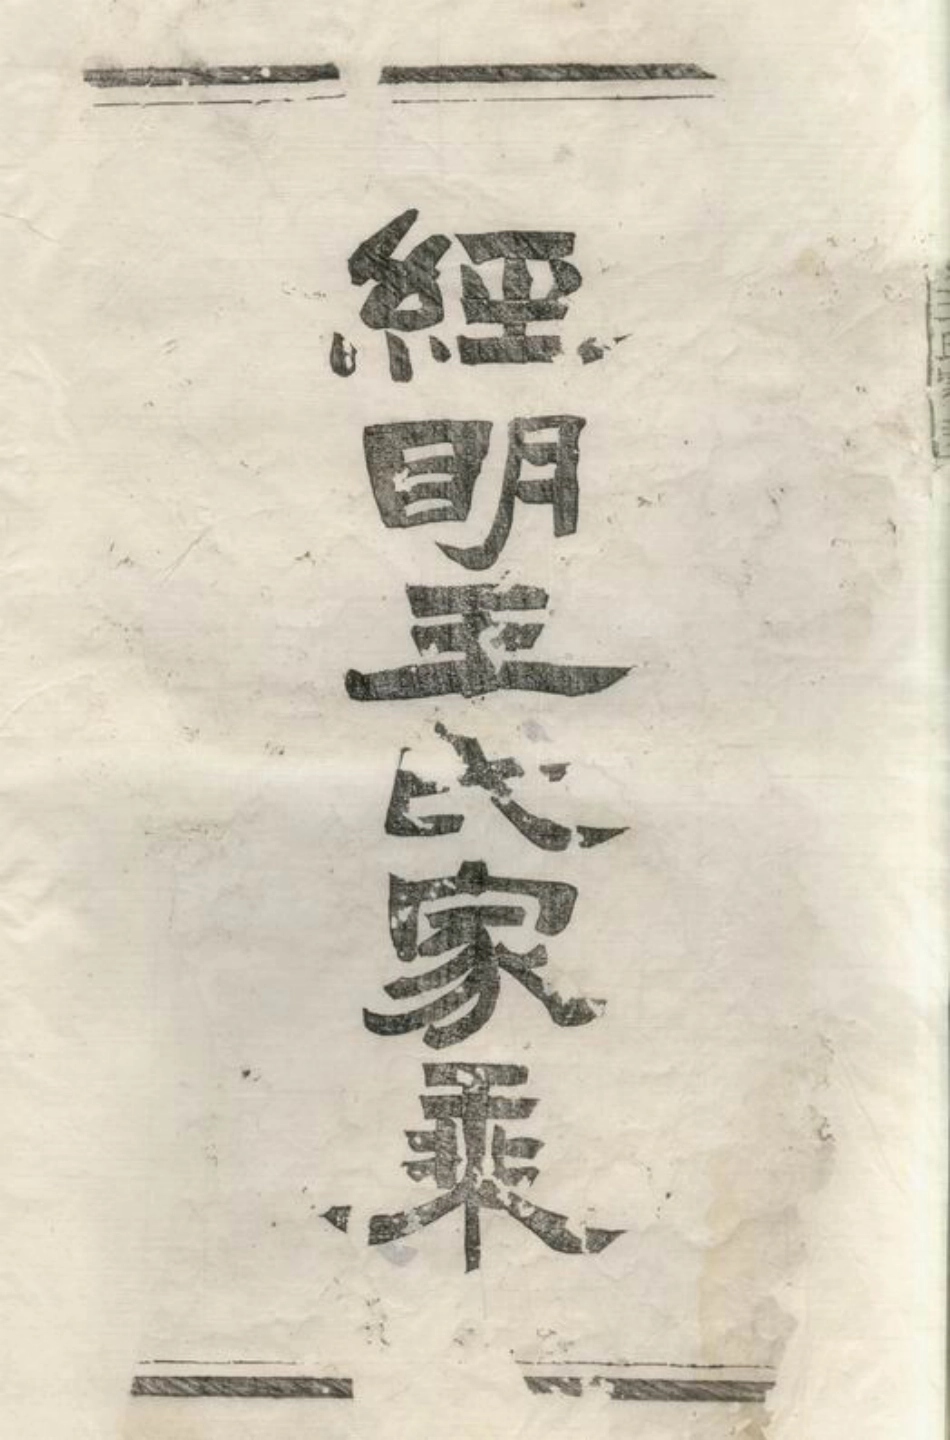 經明王氏家乘